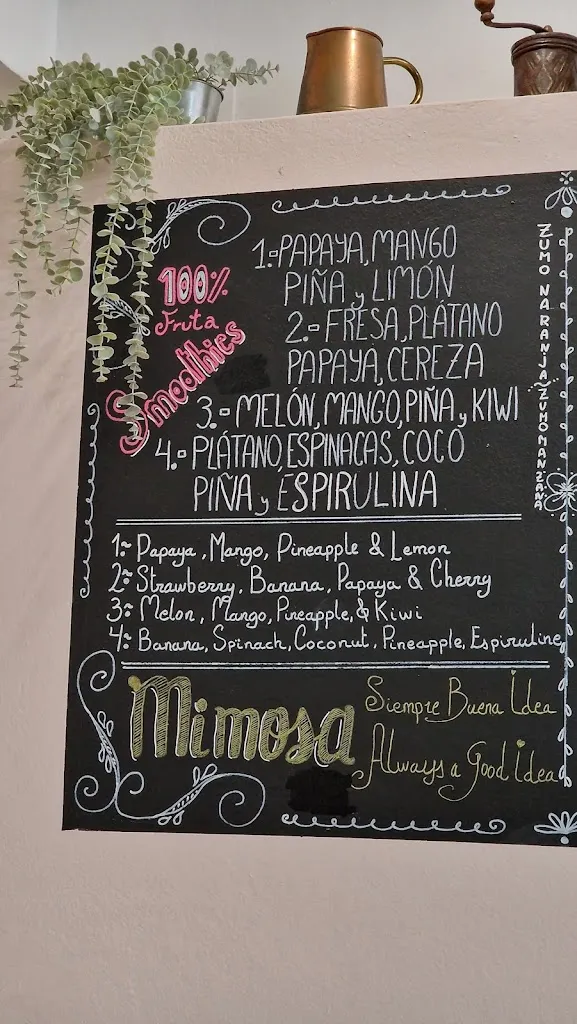 100%
Fruta
Smoothies
1.- PAPAYA, MANGO
PIÑA y LIMÓN
2.- FRESA, PLÁTANO
PAPAYA, CEREZA
3.- MELÓN, MANGO, PIÑA y KIWI
4.- PLÁTANO, ESPINACAS, COCO
PIÑA y ESPIRULINA
ZUMO NARANJA~ZUMO MANZANA
1~ Papaya, Mango, Pineapple & Lemon
2~ Strawberry, Banana, Papaya & Cherry
3~ Melon, Mango, Pineapple, & Kiwi
4~ Banana, Spinach, Coconut, Pineapple, Espiruline
Mimosa
Siempre Buena Idea
Always a Good Idea